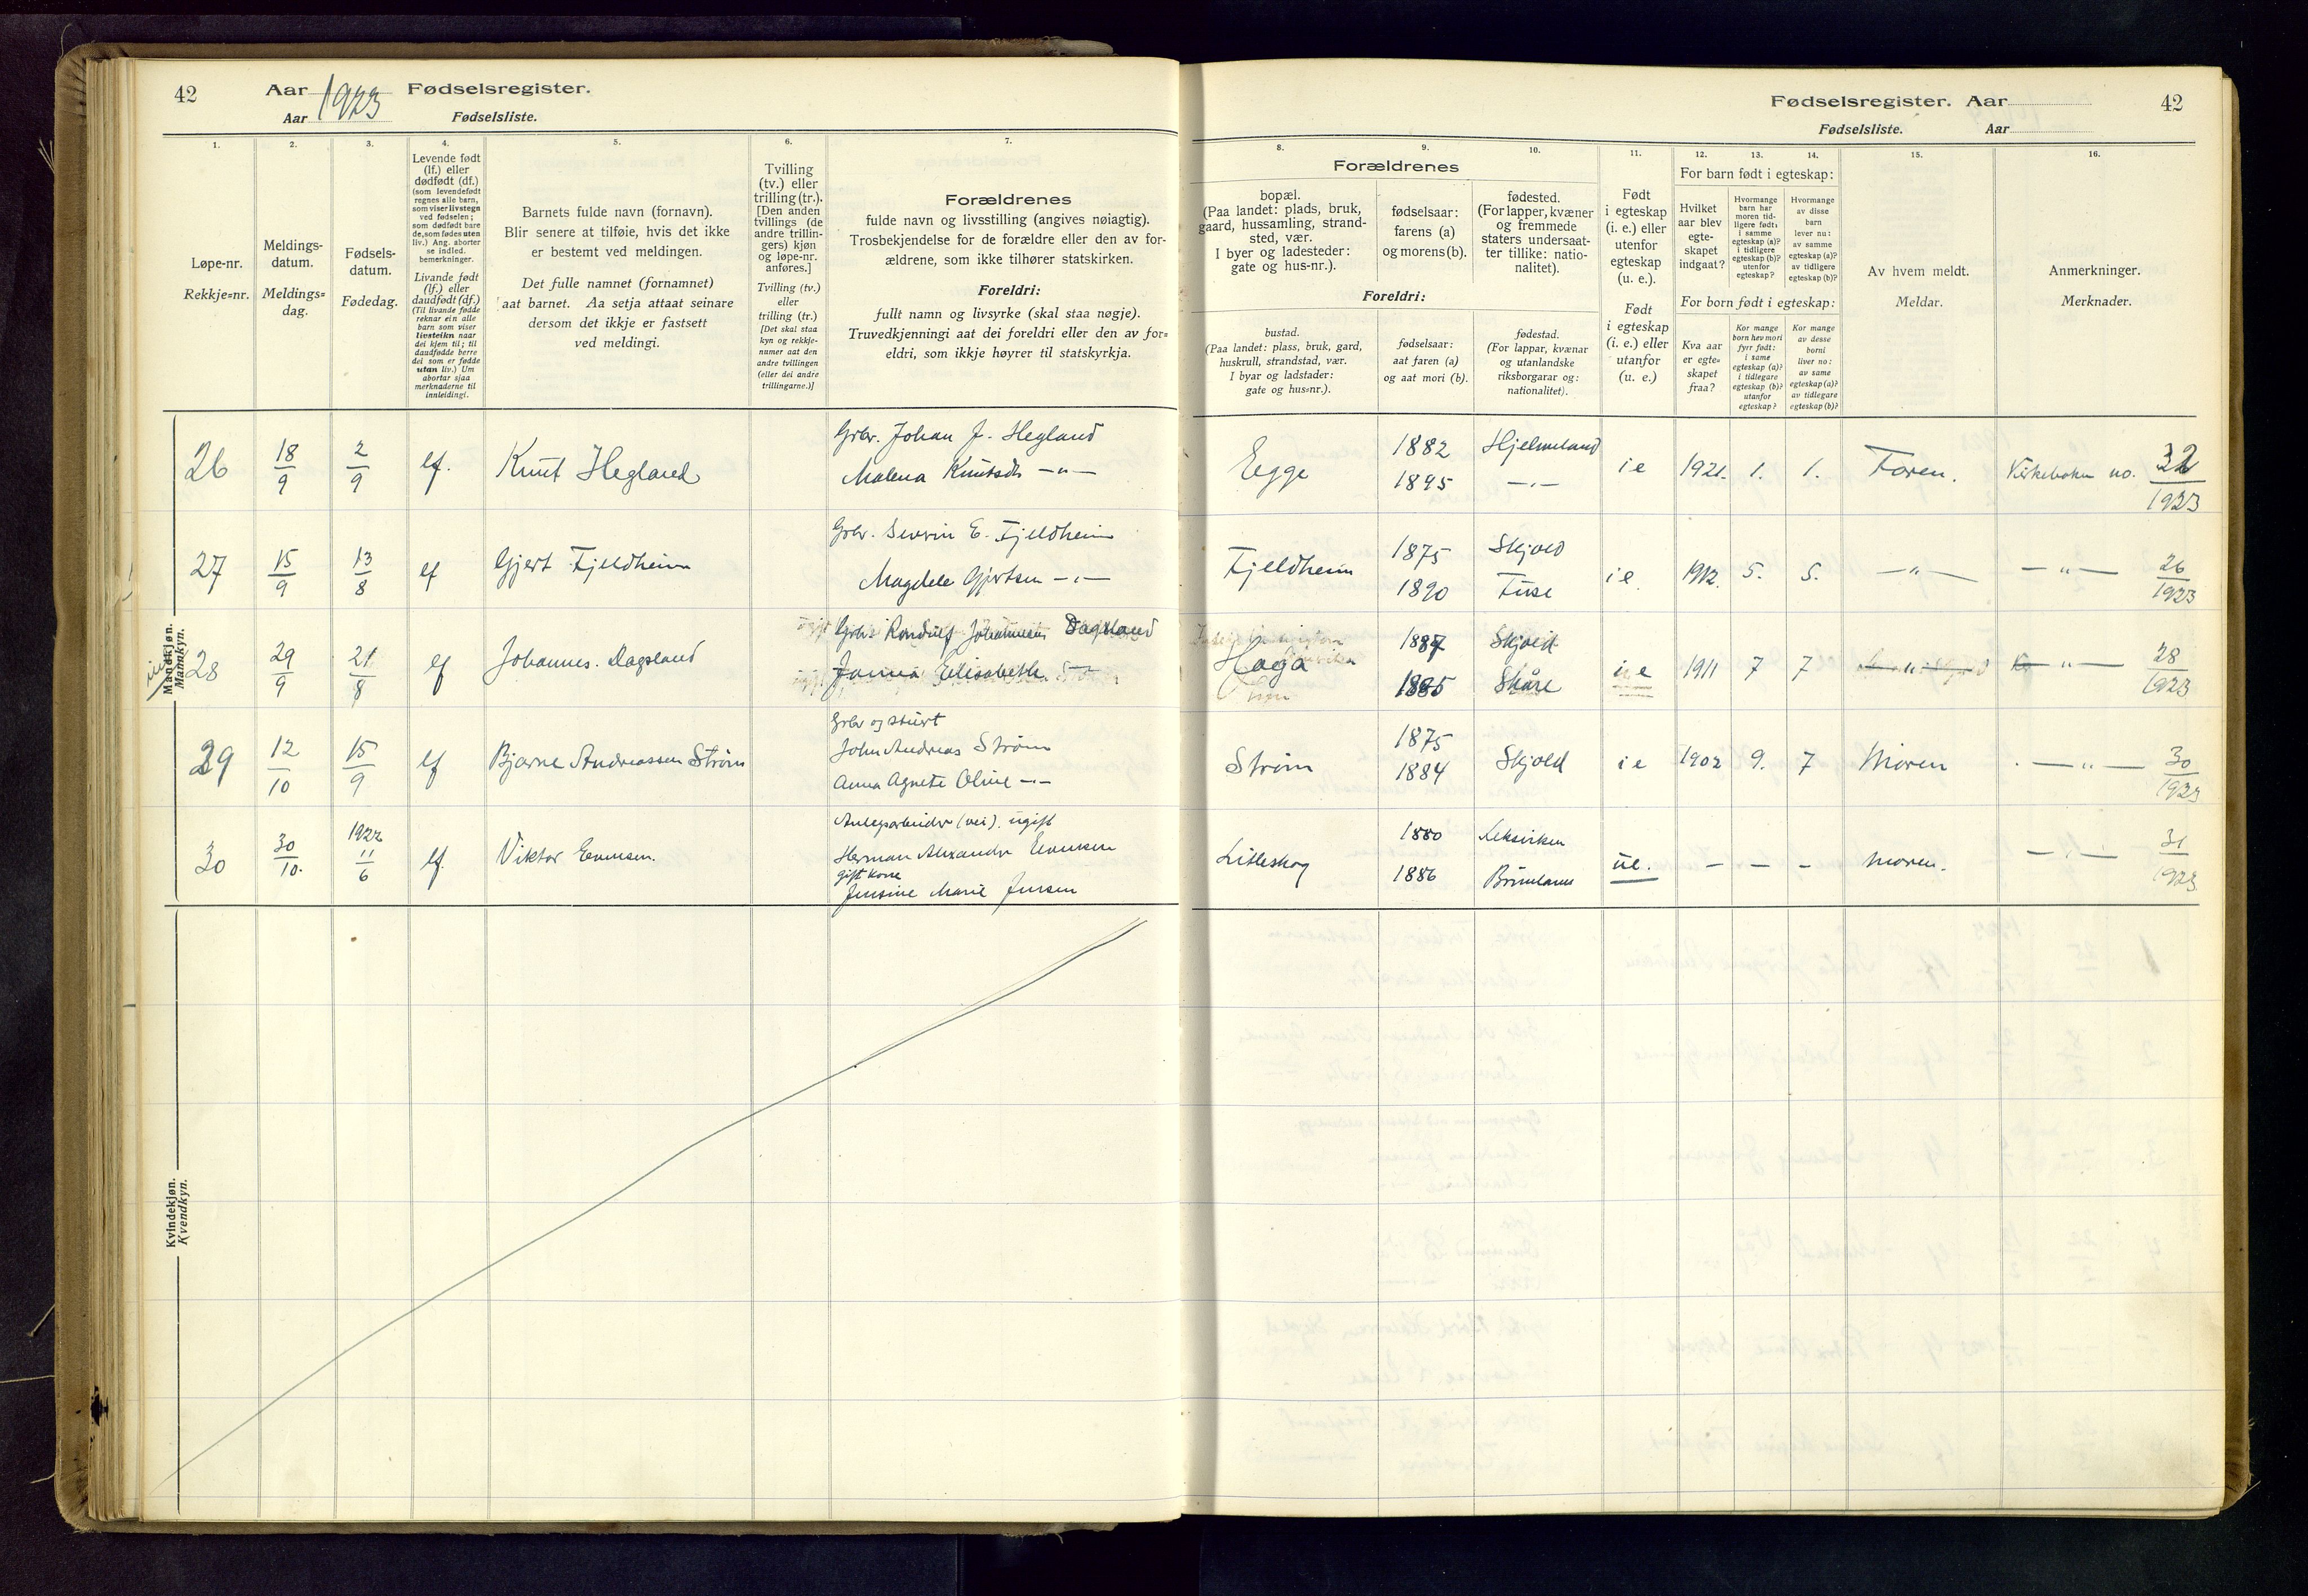 42
Aar 1923 Fødselsregister.
Aar Fødselsliste.
1.
2.
3.
4.
5.
6.
7.
Løpe-nr.
Rekkje=nr.
Meldings-
datum.
Meldings=
dag.
Fødsels-
datum.
Fødedag.
Levende født
(lf.) eller
dødfødt (df.)
(som levendefødt
regnes alle barn,
som viser livstegn
ved fødselen;
som dødfødt bare
de, som fødes uten
liv.) Ang. aborter
se indled.
bemerkninger.
Livande født
(lf.) eller
daudfødt (df.)
(Til livande fødde
reknar ein alle
barn som viser
livsteikn naar
dei kjem til; til
daudfødde berre
dei som er fødde
utan liv.) Um
abortar sjaa
merknaderne til
innleidingi.
Barnets fulde navn (fornavn).
Blir senere at tilføie, hvis det ikke
er bestemt ved meldingen.
Det fulle namnet (fornamnet)
aat barnet. Aa setja attaat seinare
dersom det ikkje er fastsett
ved meldingi.
Tvilling
(tv.) eller
trilling (tr.).
[Den anden
tvillings (de
andre trillin-
gers) kjøn
og løpe-nr.
anføres.]
Tvilling (tv.)
eller
trilling (tr.)
[Det skal staa
kyn og rekkje-
numer aat den
andre tvillingen
(eller dei andre
trillingarne.)]
Forældrenes
fulde navn og livsstilling (angives nøiagtig).
Trosbekjendelse for de forældre eller den av for-
ældrene, som ikke tilhører statskirken.
Foreldri:
fullt namn og livsyrke (skal staa nøgje).
Truvedkjenningi aat dei foreldri eller den av for=
eldri, som ikkje høyrer til statskyrkja.
Mandkjøn.
Mannkyn.
26 18/9 2/9 lf. Knut Hegland
Gbr. Johan J. Hegland
Malena Knutsdtr —"—
27 15/9 13/8 lf Gjert Fjeldheim
Gbr. Severin E. Fjeldheim
Magdele Gjertsen —"—
28 29/9 21/8 lf Johannes. Dagsland
Gbr. Johannesen Dagsland
Janna Elisabeth
29 12/10 15/9 lf Bjarne Andreassen Strøm
Gbr og stuert
John Andreas Strøm
Anna Agnete Oline —"—
30 30/10. 1922 11/6 lf. Viktor Evensen.
Anlegsarbeider (vei). ugift
Herman Alexander Evensen
gift kone
Jensine Marie Jensen
Kvindekjøn.
Kvendkyn.
Fødselsregister. Aar 42
Fødselsliste. Aar
8.
9.
10.
11.
12.
13.
14.
15.
16.
Forældrenes
bopæl.
(Paa landet: plads, bruk,
gaard, hussamling, strand-
sted, vær.
I byer og ladesteder:
gate og hus-nr.).
fødselsaar:
farens (a)
og morens (b).
fødested.
(For lapper, kvæner
og fremmede
staters undersaat-
ter tillike: natio-
nalitet).
Foreldri:
bustad.
(Paa landet: plass, bruk, gard,
huskrull, strandstad, vær.
I byar og ladstader:
gate og hus=nr.).
fødselsaar:
aat faren (a)
og aat mori (b).
fødestad.
(For lappar, kvænar
og utanlandske
riksborgarar og:
nationalitet).
Født
i egteskap
(i. e.) eller
utenfor
egteskap
(u. e.).
Født
i egteskap
(i. e.) eller
utanfor
(u. e.)
For barn født i egteskap:
Hvilket
aar blev
egte-
skapet
indgaat?
Hvormange
barn har
moren tid-
ligere født:
i samme
egteskap (a)?
i tidligere
egteskap (b)?
utenfor
egteskap?
Hvormange
av disse
barn
lever nu:
av samme
egteskap (a)?
av tidligere
egteskap (b)?
For born født i egteskap:
Kva aar
er egte=
skapet
fraa?
Kor mange
born hev mori
fyrr født:
i same
egteskap (a)?
i tidlegare
egteskap (b)?
utanfor
egteskap?
Kor mange
av desse
borni
liver no:
av same
egteskap (a)?
av tidlegare
egteskap (b)?
Av hvem meldt.
Meldar.
Anmerkninger.
Merknader.
Egge 1882 Hjelmeland i e 1921. 1. 1. Faren. Kirkeboken no. 32/1923
1895 —"—
Fjeldheim 1875 Skjold i e 1912. 5. 5. —"— —"— 26/1923
1890 Fuse
Haga 1887 Skjold i e 1911 7 7 —"— —"— 28/1923
1885 Skåre
Strøm 1875 Skjold i e 1902 9. 7 Moren —"— 30/1923
1884
Litleskog 1880 Leksviken ue. – – – moren. —"— 31/1923
1886